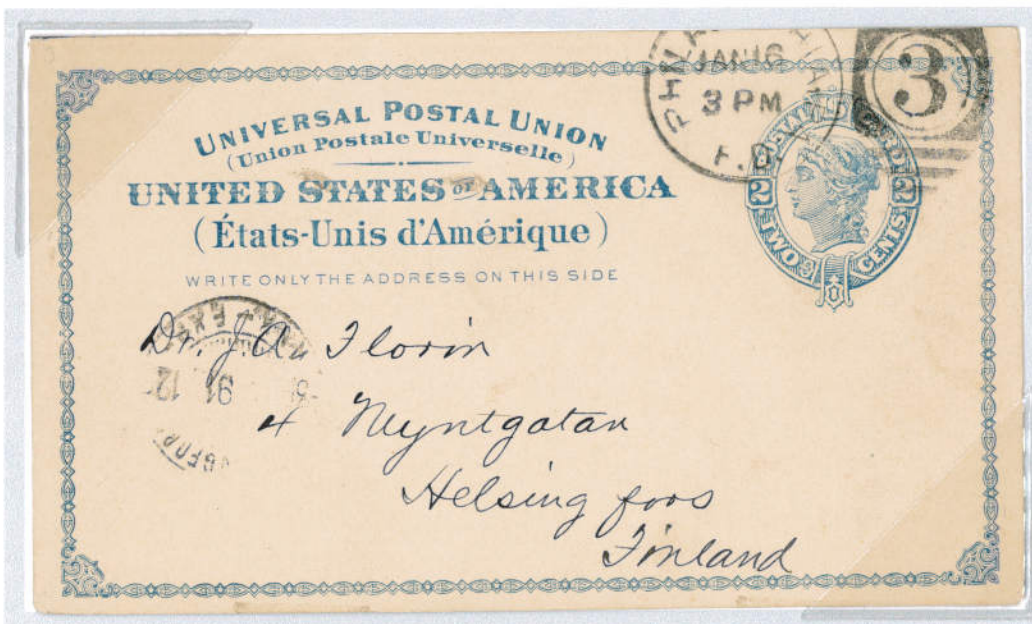 UNIVERSAL POSTAL UNION
(Union Postale Universelle)
UNITED STATES OF AMERICA
(États-Unis d'Amérique)
WRITE ONLY THE ADDRESS ON THIS SIDE
JAN 16
3 PM
3
2 2
TWO CENTS
Dr. J. A. Florin
4 Myntgatan
Helsingfors
Finland
91 12